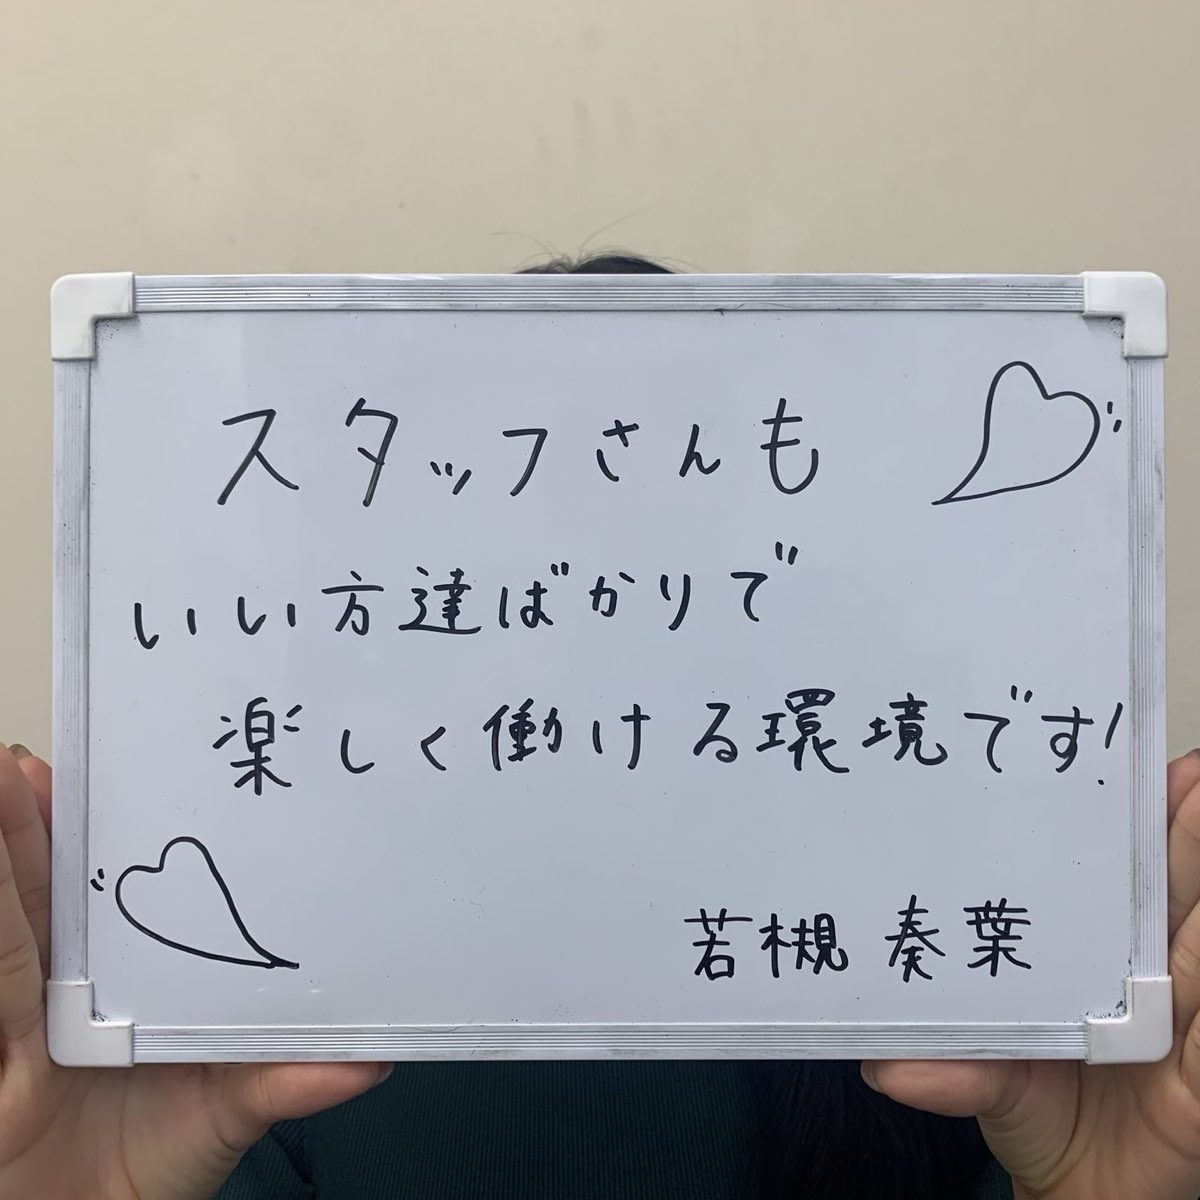 スタッフさんも
いい方達ばかりで
楽しく働ける環境です!
若槻 奏葉